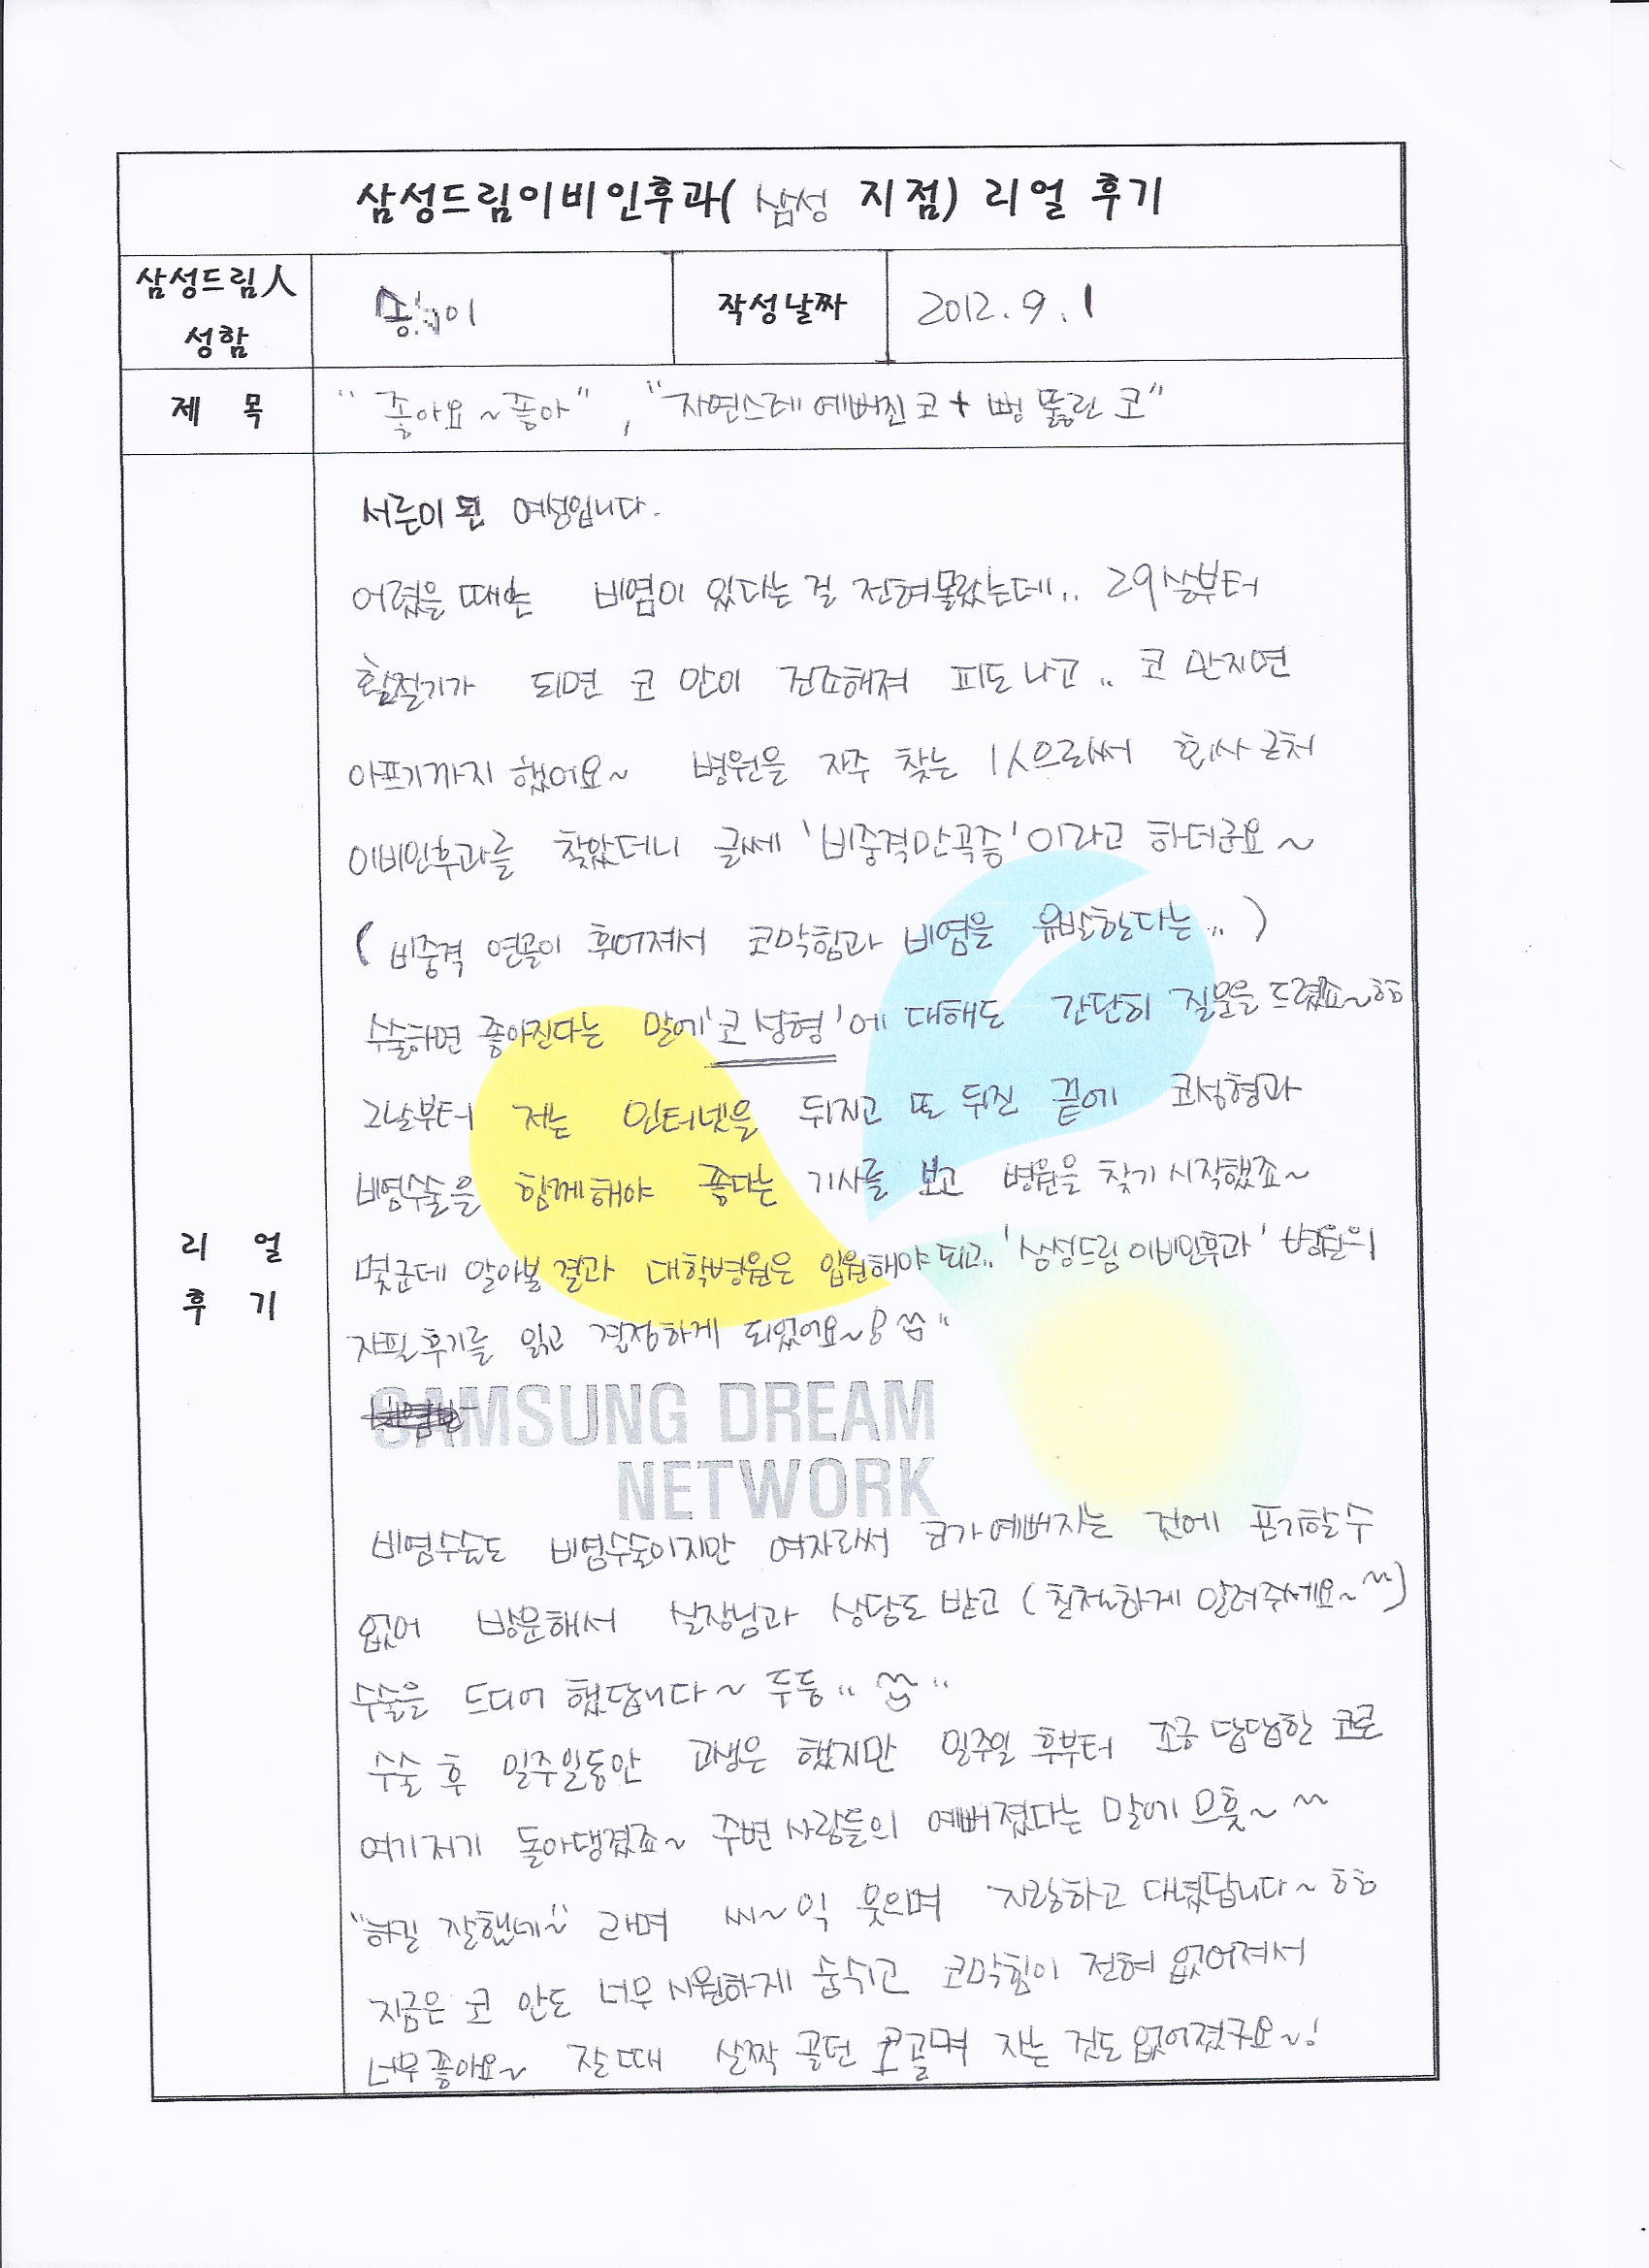 삼성드림이비인후과( 삼성 지점) 리얼 후기
삼성드림人
성함
송 이
작성날짜
2012. 9. 1
제 목
"좋아요~좋아", "자연스레 예뻐진 코 + 뻥 뚫린 코"
리 얼
후 기
서른이 된 여성입니다.
어렸을 때는 비염이 있다는 걸 전혀몰랐는데.. 29살부터
환절기가 되면 코 안이 건조해져 피도 나고.. 코 만지면
아프기까지 했어요~ 병원을 자주 찾는 1人으로써 회사 근처
이비인후과를 찾았더니 글쎄 '비중격만곡증'이라고 하더군요~
(비중격 연골이 휘어져서 코막힘과 비염을 유발한다는...)
수술하면 좋아진다는 말에 '코 성형'에 대해도 간단히 질문을 드렸죠~ㅎㅎ
그날부터 저는 인터넷을 뒤지고 또 뒤진 끝에 코성형과
비염수술을 함께해야 좋다는 기사를 보고 병원을 찾기 시작했죠~
몇군데 알아볼 결과 대학병원은 입원해야 되고.. '삼성드림이비인후과' 병원의
자필후기를 읽고 결정하게 되었어요~!
SAMSUNG DREAM
NETWORK
비염수술도 비염수술이지만 여자로써 코가 예뻐지는 것에 포기할 수
없어 방문해서 실장님과 상담도 받고 (친절하게 알려주세요~^^)
수술을 드디어 했답니다~ 두둥..
수술 후 일주일동안 고생은 했지만 일주일 후부터 조금 답답한 코로
여기저기 돌아댕겼죠~ 주변 사람들의 예뻐졌다는 말에 으흣~ ^^
"하길 잘했네~" 라며 씨~익 웃으며 자랑하고 다녔답니다~ ㅎㅎ
지금은 코 안도 너무 시원하게 숨쉬고 코막힘이 전혀 없어져서
너무 좋아요~ 잘 때 살짝 골던 코골며 자는 것도 없어졌구요~!